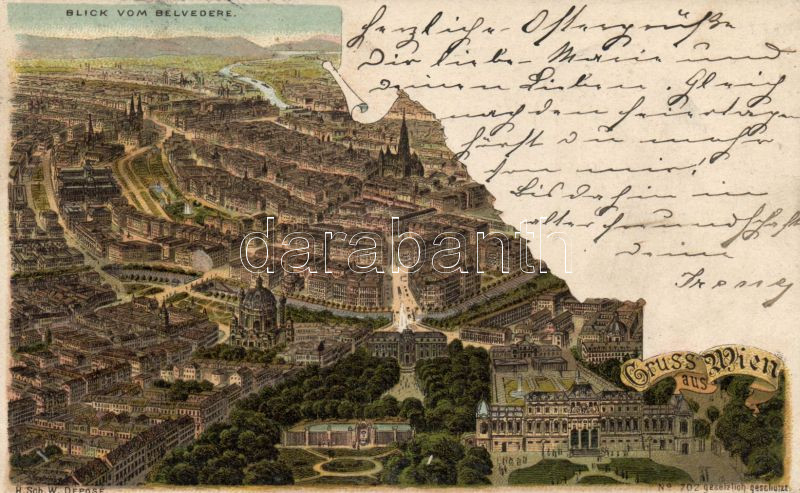 BLICK VOM BELVEDERE.
Herzliche Ostergrüße
Dir liebe Marie und
deinen Lieben. Gleich
nach den Feiertagen
hörst du mehr
von mir!
Bis dahin in
alter Freundschaft
deine
darabanth
Gruss
aus Wien
R. Sch. W. DEPOSE
No 702 gesetzlich geschützt.